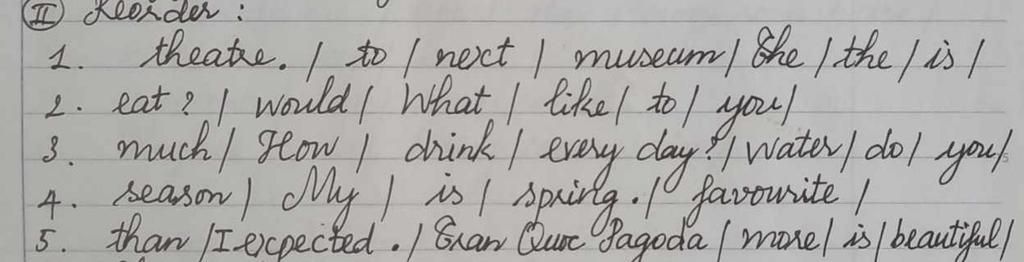 II Reorder :
1. theatre. / to / next / museum / The / the / is /
2. eat ? / would / What / like / to / you /
3. much / How / drink / every day ? / water / do / you /
4. season / My / is / spring. / favourite /
5. than / I expected. / Tran Quoc Pagoda / more / is / beautiful /